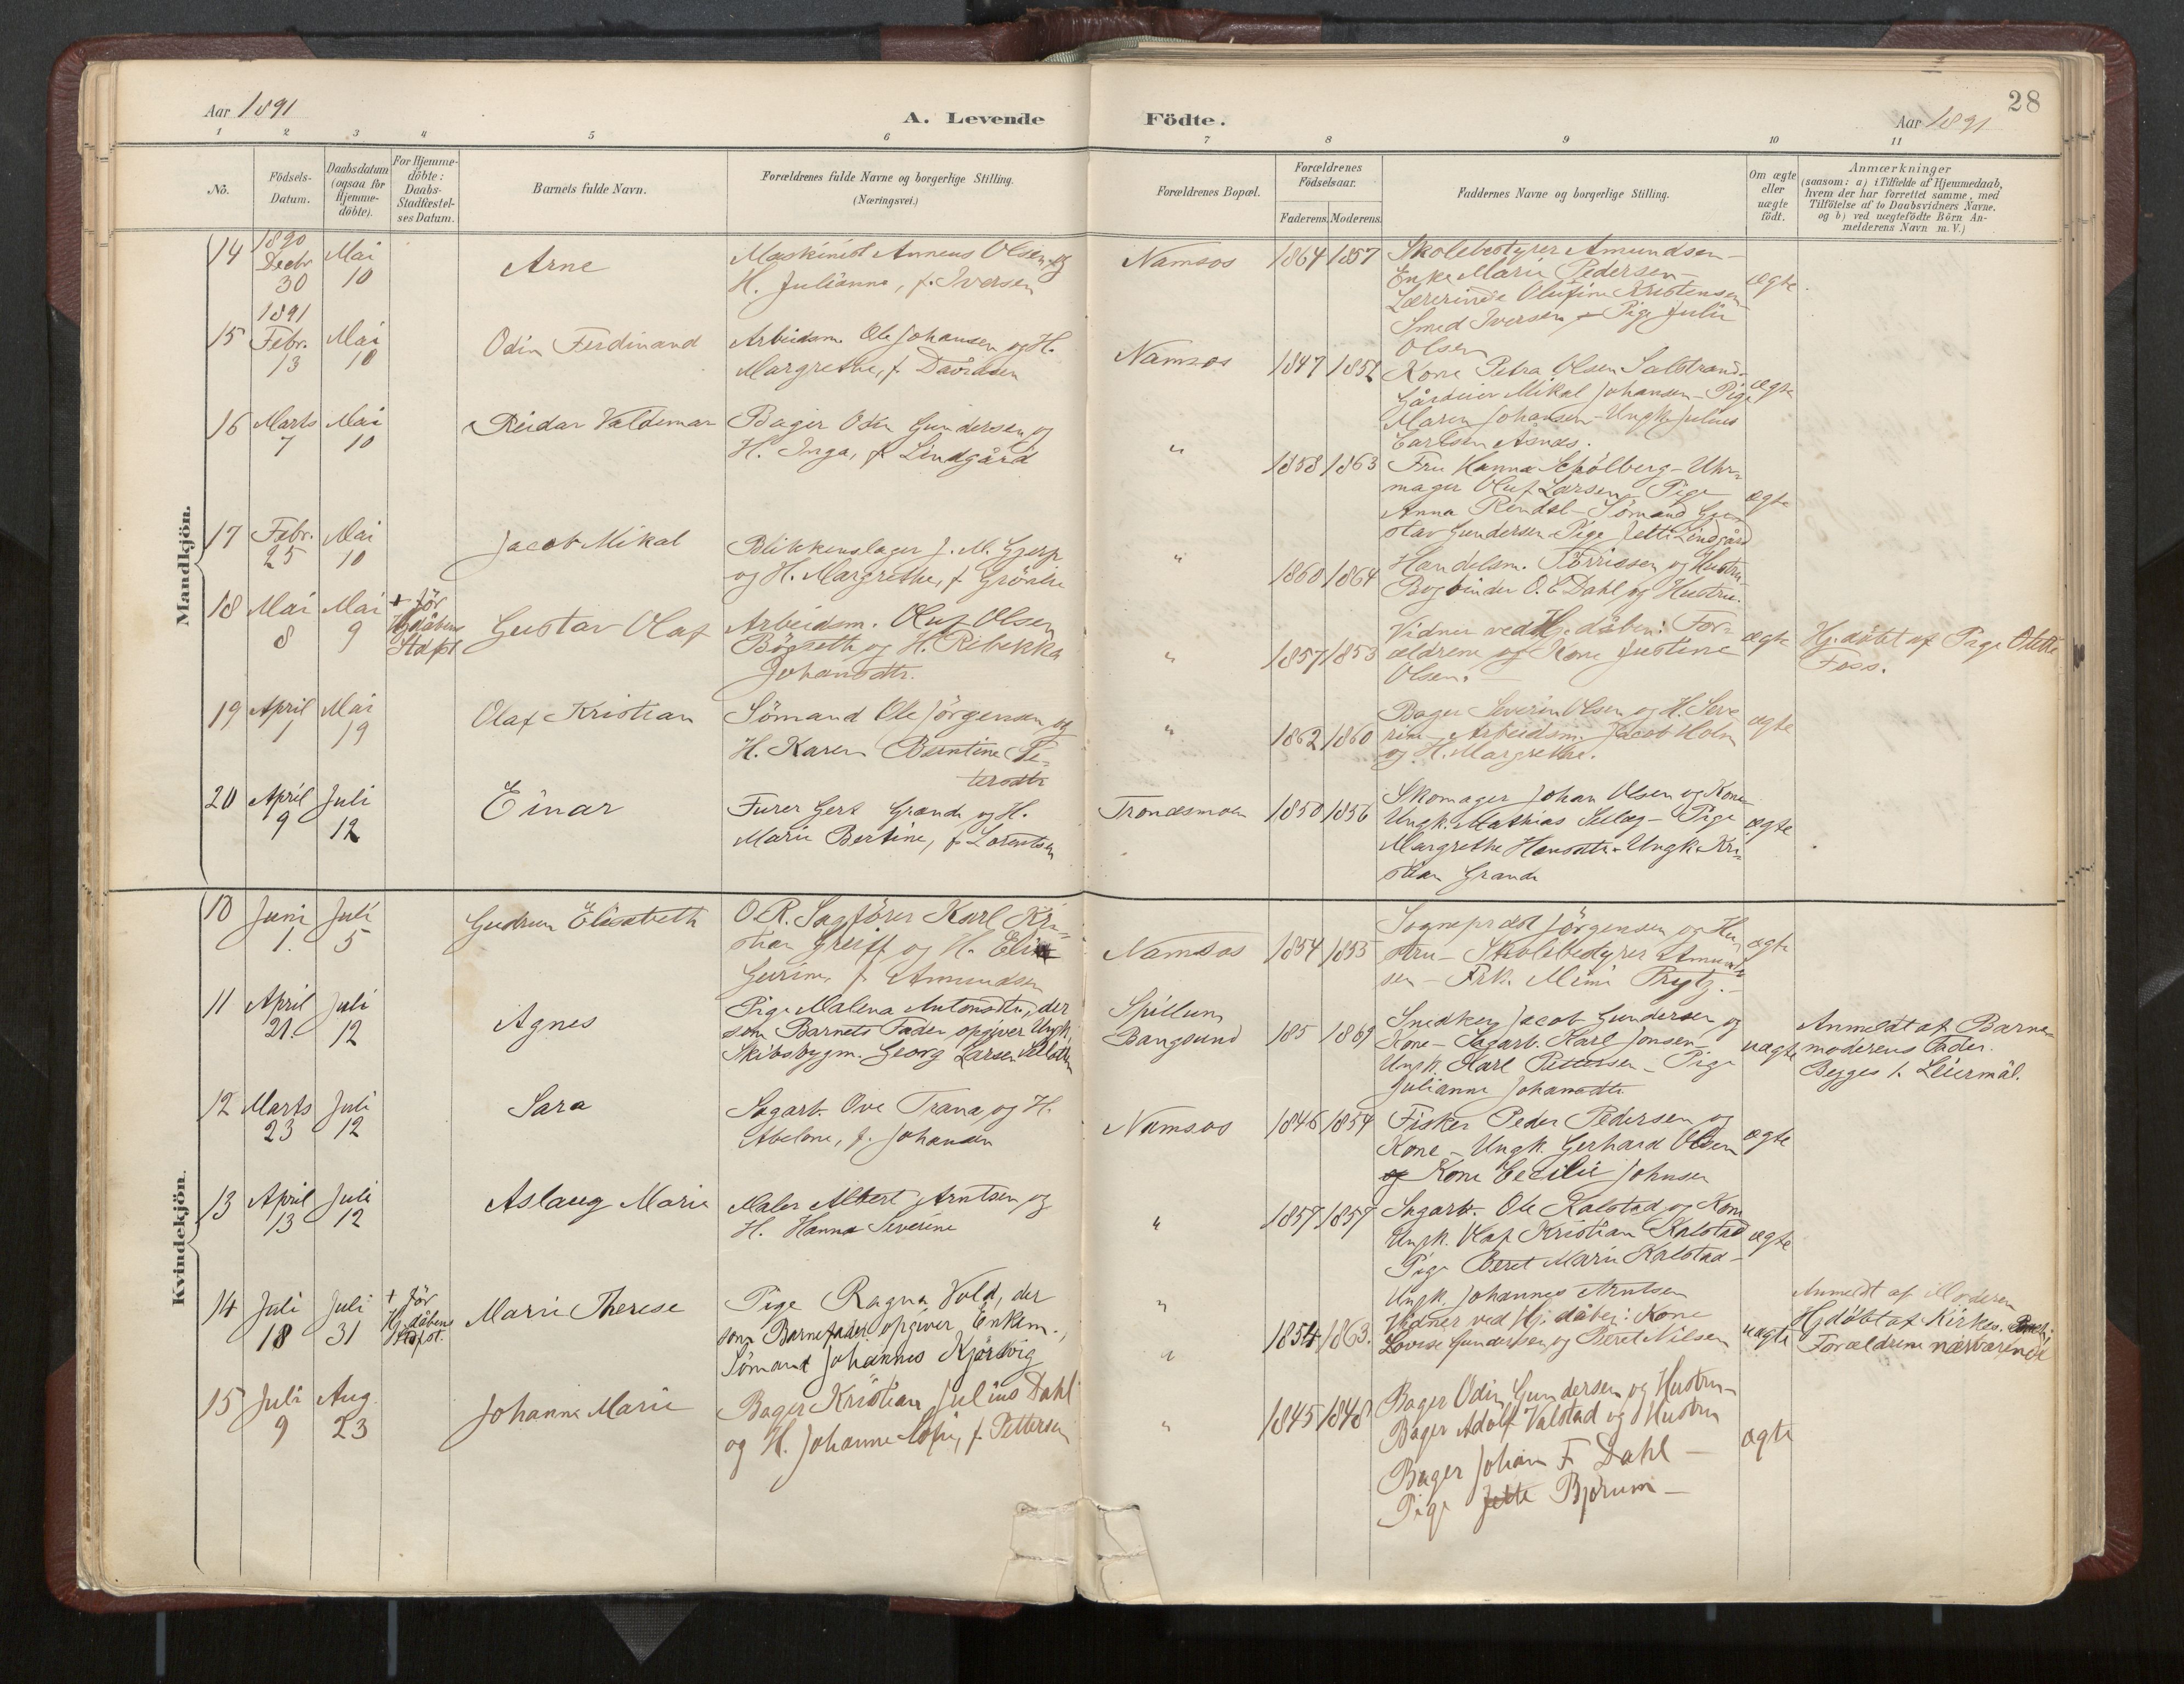 Aar 1891
A. Levende
Födte.
Aar 1891
28
1 2 3 4 5 6 7 8 9 10 11
No.
Födsels-
Datum.
Daabsdatum
(ogsaa for
Hjemme-
döbte).
For Hjemme-
döbte:
Daabs-
Stadfæstel-
ses Datum.
Barnets fulde Navn.
Forældrenes fulde Navne og borgerlige Stilling.
(Næringsvei.)
Forældrenes Bopæl.
Forældrenes
Födselsaar.
Faderens. Moderens.
Faddernes Navne og borgerlige Stilling.
Om ægte
eller
uægte
födt.
Anmærkninger
(saasom: a) i Tilfælde af Hjemmedaab,
hvem der har forrettet samme, med
Tilföielse af to Daabsvidners Navne.
og b) ved uægtefödte Börn An-
melderens Navn m. V.)
Mandkjön.
14
1890
Decbr
30
Mai
10
Arne
Maskinist Anneus Olsen og
H. Julianna, f. Iversen
Namsos
1864 1857
Skolebestyrer Amundsen -
Enke Marie Pedersen -
Lærerinde Olufine Kristensen
Smed Iversen - Pige Julie
Olsen
ægte
1891
15
Febr.
13
Mai
10
Odin Ferdinand
Arbeidsm. Ole Johansen og H.
Margrethe, f. Davidsen
Namsos
1847 1852
Kone Petra Olsen Salstrand -
Gårdeier Mikal Johansen - Pige
Maren Johansen - Ungk. Julius
Carlsen Asnes.
ægte
16
Marts
7
Mai
10
Reidar Valdemar
Bager Odin Gundersen og
H. Inga, f. Lindgård
"
1858 1863
Fru Hanna Schölberg - Uhr-
mager Oluf Larsen - Pige
Anna Rendal - Sömand Gu-
stav Gundersen - Pige Jette Lindgård
ægte
17
Febr.
25
Mai
10
Jacob Mikal
Blikkenslager J. M. Gjerp
og H. Margrethe, f. Grönlie
"
1860 1864
Handelsm. Törrissen og Hustru
Bogbinder O. E. Dahl og Hustru.
18
Mai
8
Mai
9
+ för
Hjdåbens
Stdfst
Gustav Olaf
Arbeidsm. Oluf Olsen
Börseth og H. Rebekka
Johansdtr.
"
1857 1853
Vidner ved Hj.dåben: For-
ældrene og Kone Justine
Olsen.
ægte
Hj.döbt af Pige Olette
Foss.
19
April
1
Mai
19
Olaf Kristian
Sömand Ole Jörgensen og
H. Karen Berntine Pe-
tersdtr
"
1862 1860
Bager Severin Olsen og H. Seve
rine - Arbeidsm. Jacob Holm
og H. Margrethe.
ægte
20
April
9
Juli
12
Einar
Furer Gert Grande og H.
Marie Bertine, f. Lorentsen
Trondsmoen
1850 1856
Skomager Johan Olsen og Kone
Ungk. Mathias Sellæg - Pige
Margrethe Hansdtr. - Ungk. Kri-
stian Grande
ægte
Kvindekjön.
10
Juni
1.
Juli
5
Gudrun Elisabeth
O.R. Sagförer Karl Kri-
stian Greiff og H. Elise
Gurine, f. Amundsen
Namsos
1854 1855
Sogneprest Jörgensen og Hu-
stru - Skolebestyrer Amund-
sen - Frk. Mimi Prytz. -
ægte
11
April
21.
Juli
12
Agnes
Pige Malena Antonsdtr, der
som Barnets Fader opgiver Ungk.
Skibsbygm. Georg Larsen
Spillum
Bangsund
185 1869
Snedker Jacob Gundersen og
Kone - Sagarb. Karl Jonsen -
Ungk. Karl Pettersen - Pige
Julianne Johansdtr
uægte
Anmeldt af Barne-
moderens Fader.
Begges 1. Leiermål.
12
Marts
23
Juli
12
Sara
Sagarb. Ove Trana og H.
Abelone, f. Johansen
Namsos
1846 1854
Fisker Peder Pedersen og
Kone - Ungk. Gerhard Olsen
og Kone Cecilie Johnsen
ægte
13
April
13
Juli
12
Aslaug Marie
Maler Albert Arntsen og
H. Hanna Severine
"
1857 1857
Sagarb. Ole Kalstad og Kone
Ungk. Olaf Kristian Kalstad
Pige Beret Marie Kalstad -
Ungk. Johannes Arntsen
ægte
14
Juli
18
Juli
31
+ för
Hj.dåbens
Stdfst.
Marie Therese
Pige Ragna Vold, der
som Barnefader opgiver Enkem.,
Sömand Johannes Kjörsvig
"
1854 1863.
Vidner ved Hj. dåben: Kone
Lovise Gundersen og Beret Nilsen
uægte
Anmeldt af Moderen
Hjdöbt af Kirkes.
Forældrene nærværende
15
Juli
9
Aug.
23
Johanne Marie
Bager Kristian Julius Dahl
og H. Johanne Sofie, f. Pettersen
"
1845 1848
Bager Odin Gundersen og Hustru -
Bager Adolf Valstad og Hustru
Bager Johan F. Dahl -
Pige Jette Bjørum -
ægte